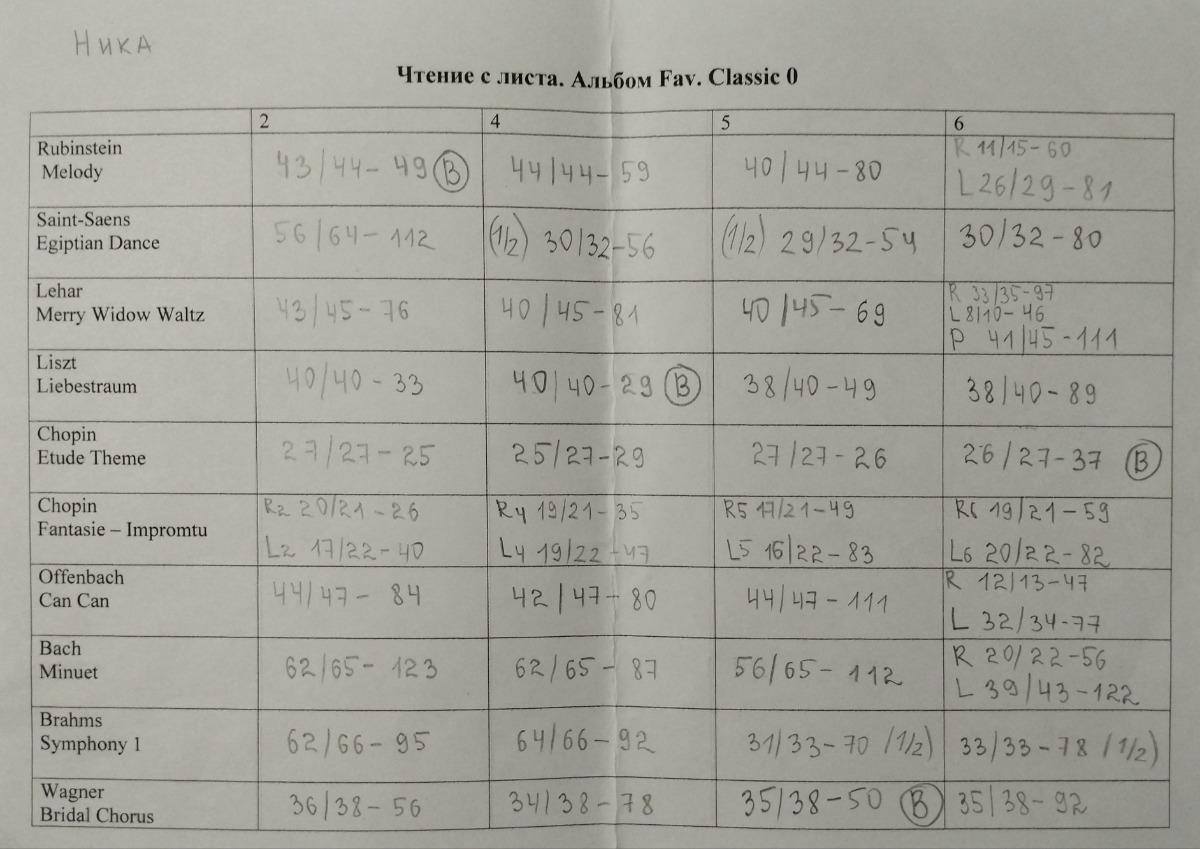 Ника
Чтение с листа. Альбом Fav. Classic 0
2 4 5 6
Rubinstein
Melody
43/44 - 49 (B)
44/44 - 59
40/44 - 80
R 11/15 - 60
L 26/29 - 81
Saint-Saens
Egiptian Dance
56/64 - 112
(1/2) 30/32 - 56
(1/2) 29/32 - 54
30/32 - 80
Lehar
Merry Widow Waltz
43/45 - 76
40/45 - 81
40/45 - 69
R 33/35 - 97
L 8/10 - 46
P 41/45 - 111
Liszt
Liebestraum
40/40 - 33
40/40 - 29 (B)
38/40 - 49
38/40 - 89
Chopin
Etude Theme
27/27 - 25
25/27 - 29
27/27 - 26
26/27 - 37 (B)
Chopin
Fantasie – Impromtu
R2 20/21 - 26
L2 17/22 - 40
R4 19/21 - 35
L4 19/22 - 47
R5 17/21 - 49
L5 16/22 - 83
R6 19/21 - 59
L6 20/22 - 82
Offenbach
Can Can
44/47 - 84
42/47 - 80
44/47 - 111
R 12/13 - 47
L 32/34 - 77
Bach
Minuet
62/65 - 123
62/65 - 87
56/65 - 112
R 20/22 - 56
L 39/43 - 122
Brahms
Symphony 1
62/66 - 95
64/66 - 92
31/33 - 70 (1/2)
33/33 - 78 (1/2)
Wagner
Bridal Chorus
36/38 - 56
34/38 - 78
35/38 - 50 (B)
35/38 - 92